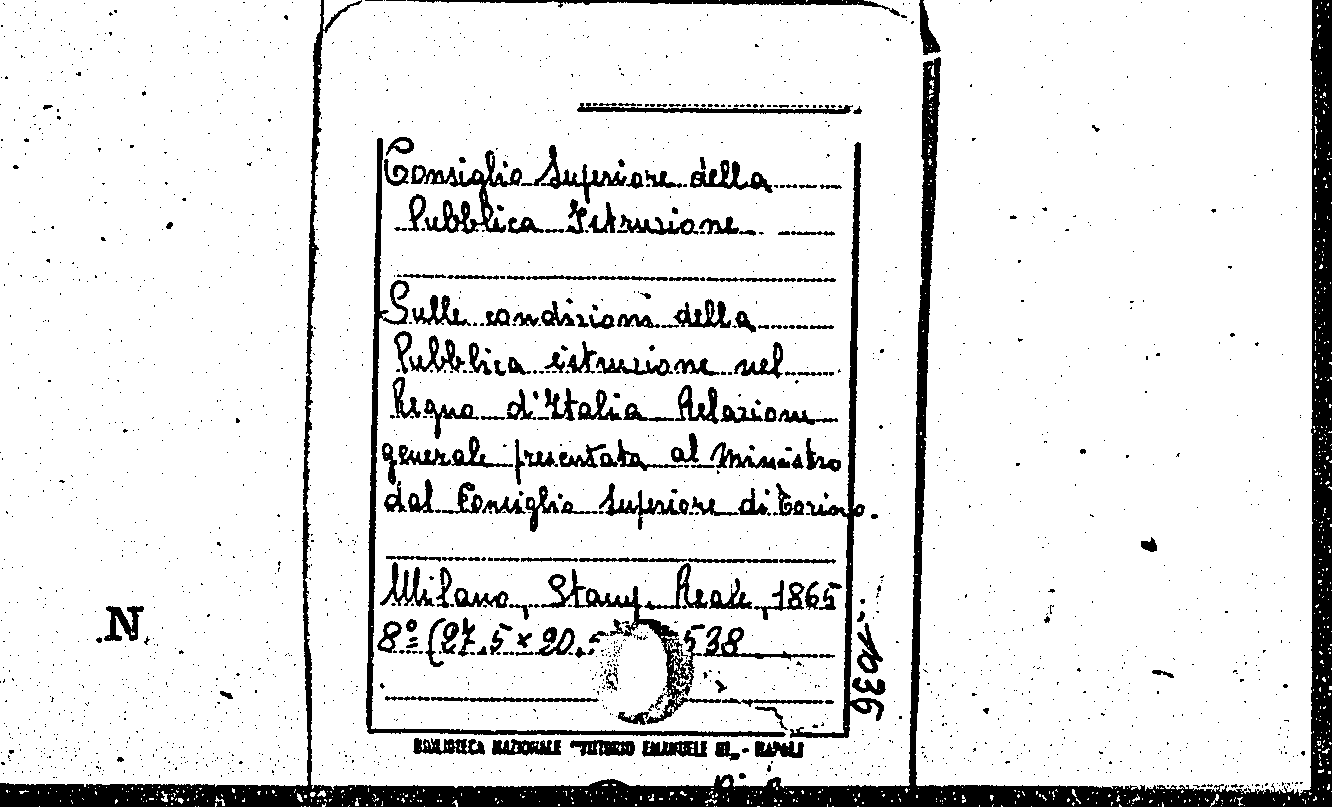 Consiglio Superiore della
Pubblica Istruzione
Sulle condizioni della
Pubblica istruzione nel
Regno d'Italia Relazione
generale presentata al Ministro
dal Consiglio Superiore di Torino.
Milano, Stamp. Reale, 1865
8º (27.5 × 20.5 538
N
BIBLIOTECA NAZIONALE "VITTORIO EMANUELE III„ - NAPOLI